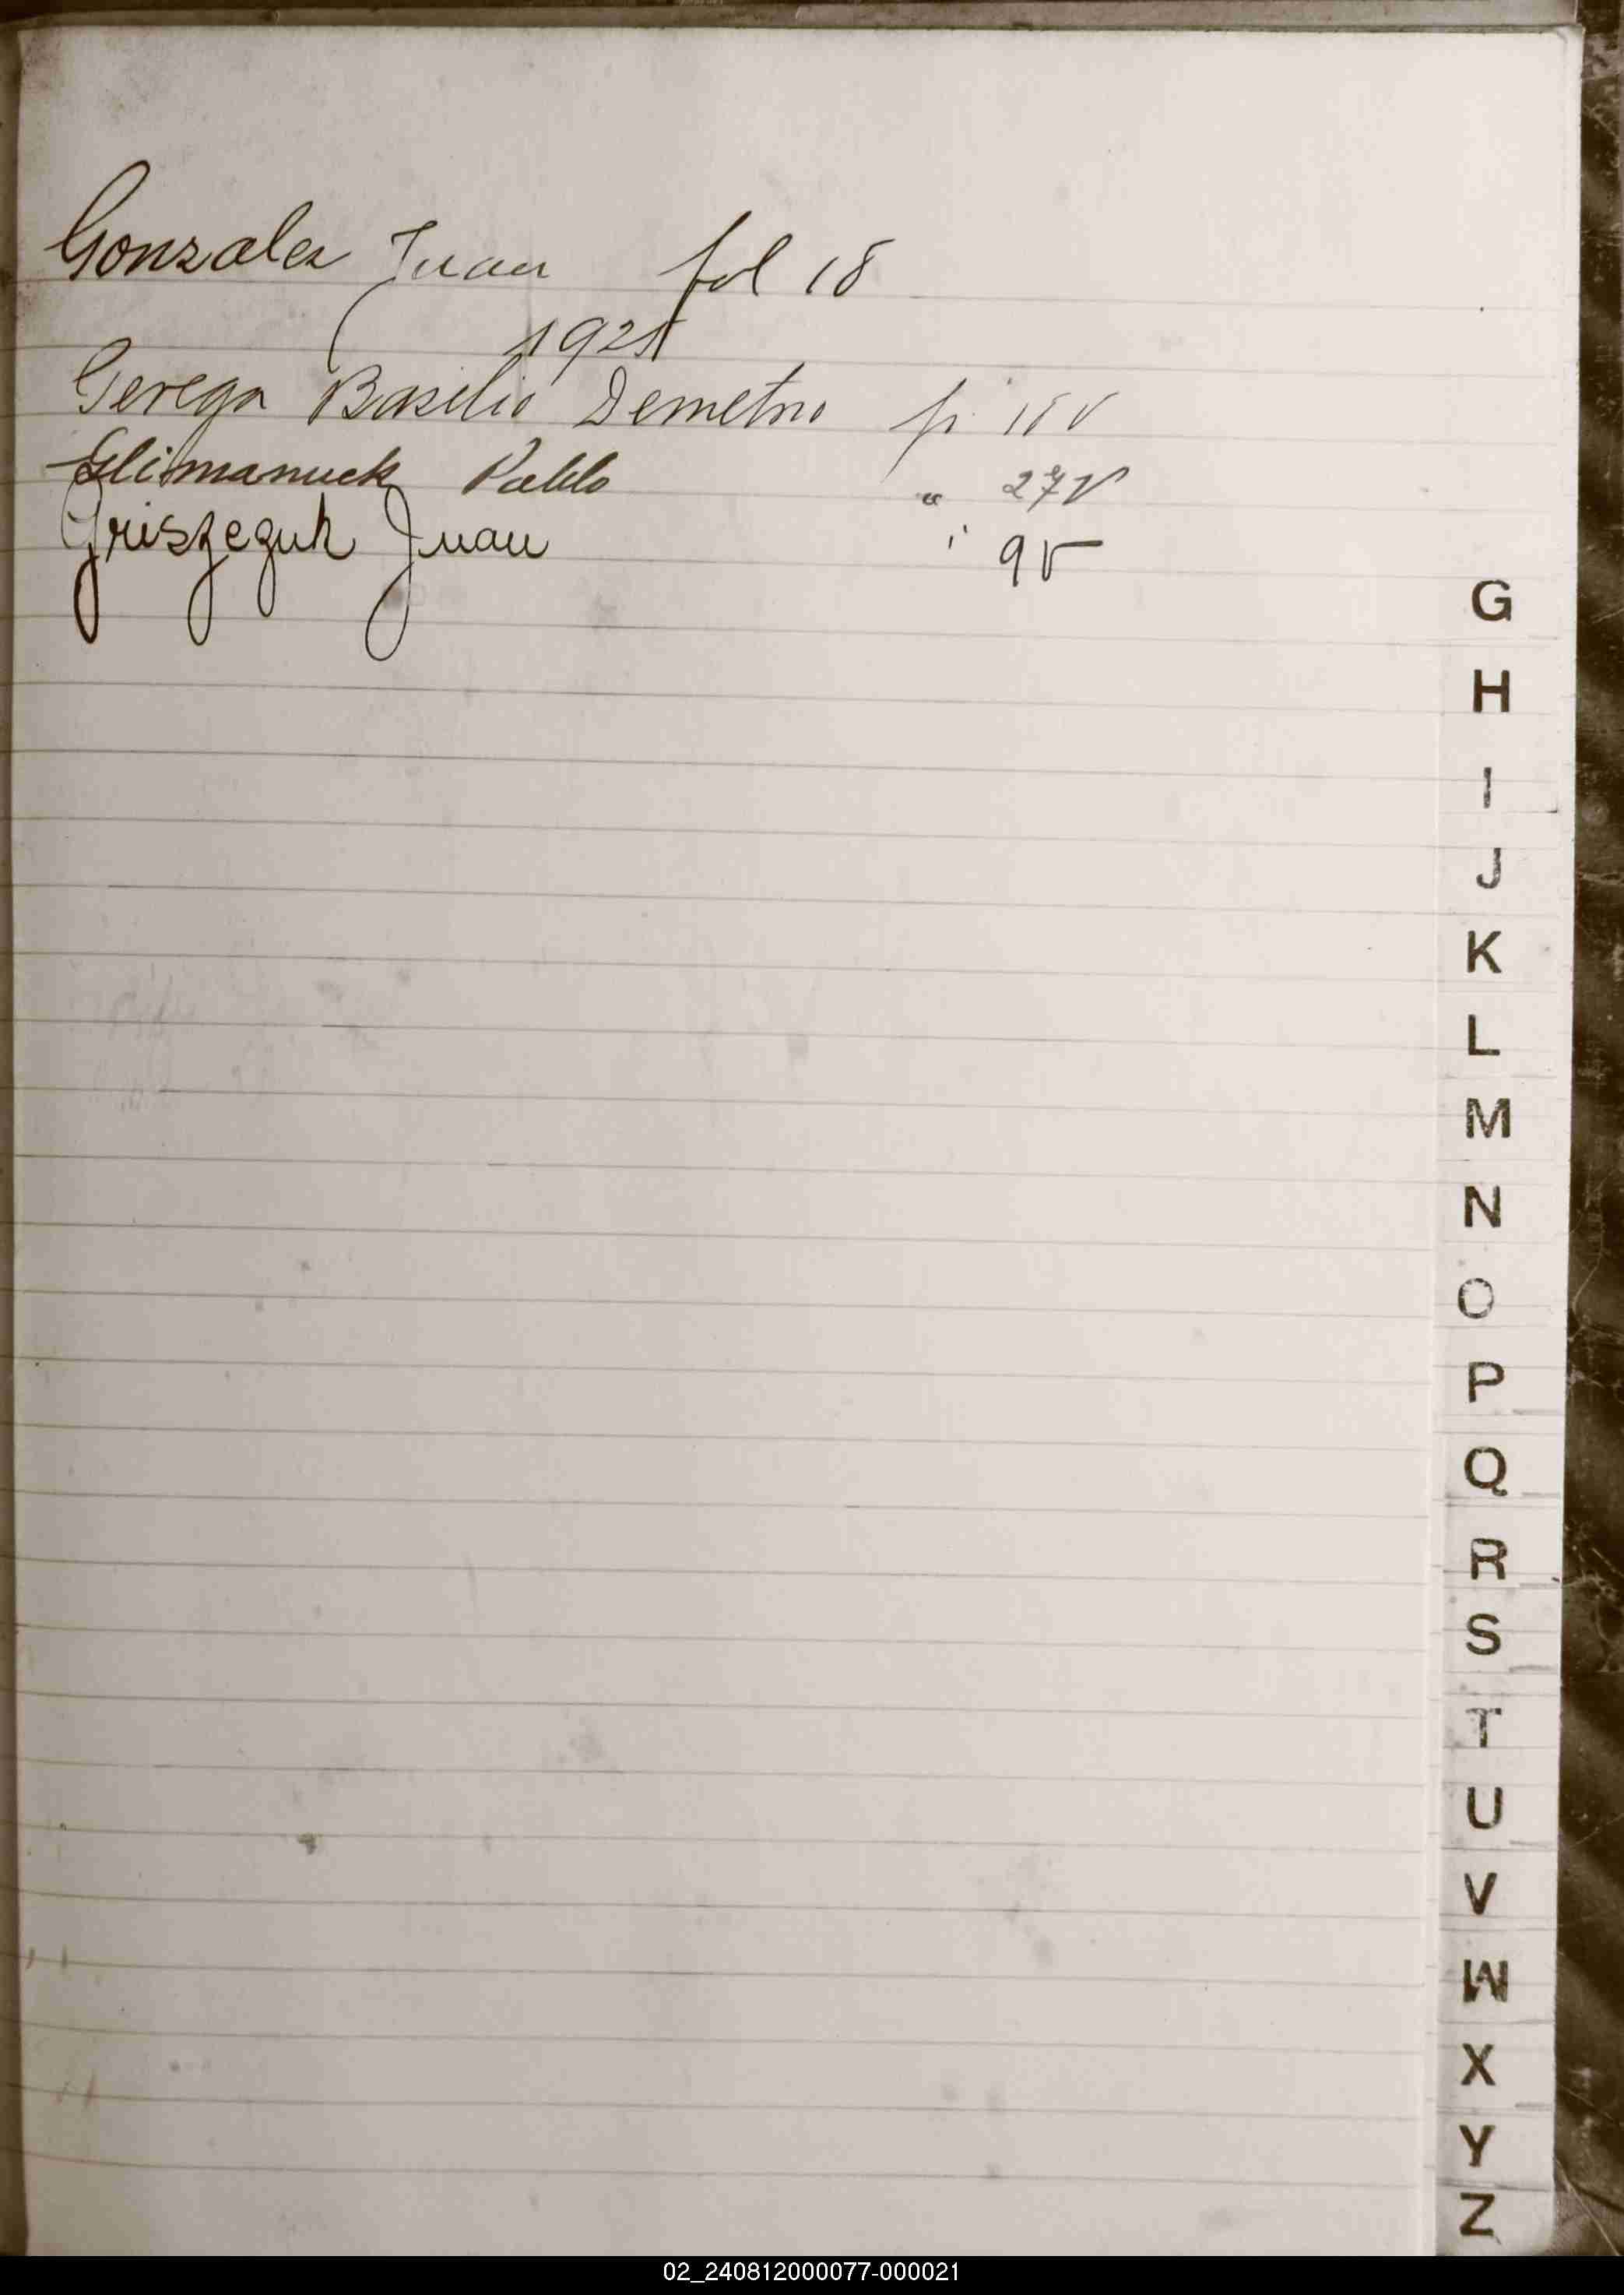 Gonzalez Juan fol 18
1921
Gerega Basilio Demetrio fi 18 v
Glimanuck Pablo " 27v
Griszczuk Juan " 9v
G
H
I
J
K
L
M
N
O
P
Q
R
S
T
U
V
W
X
Y
Z
02_240812000077-000021